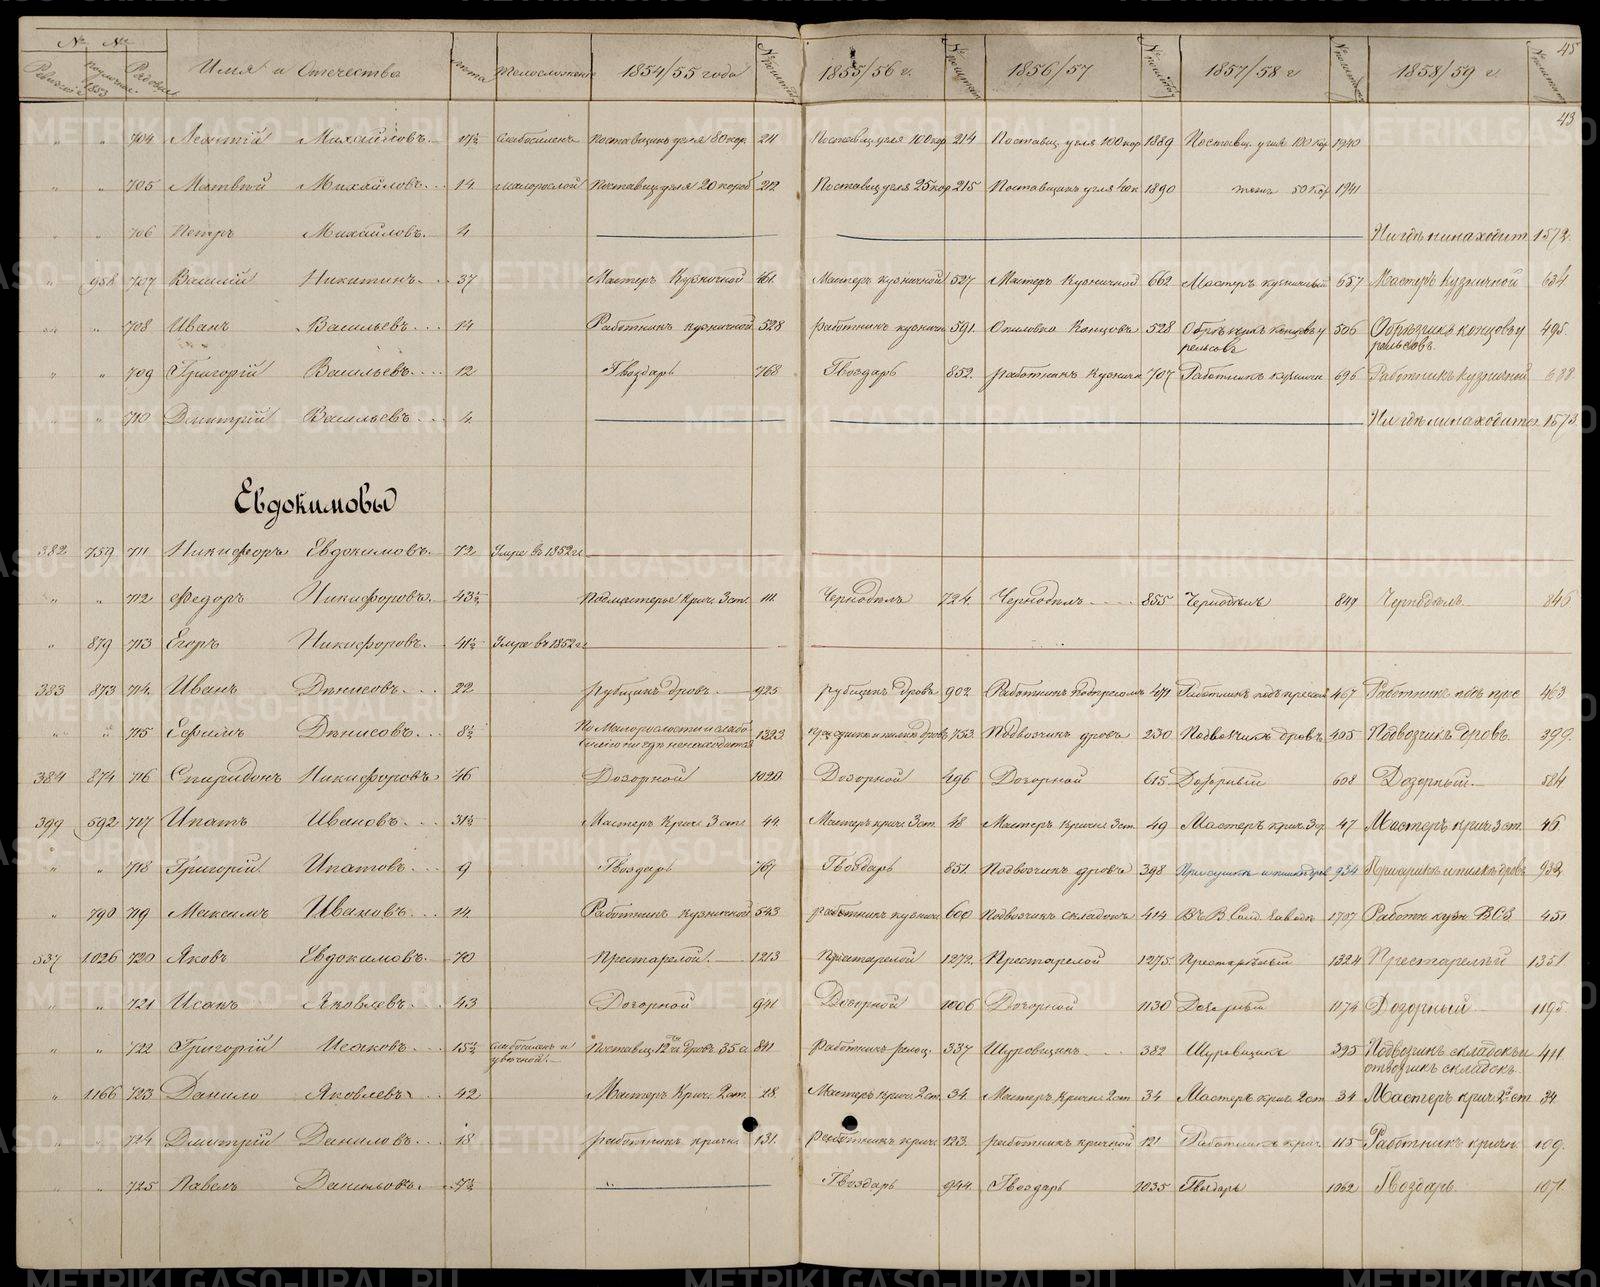 45
№ №
Имя и Отчество Лета Телосложение 1854/55 года 1855/56 г. 1856/57 1857/58 г 1858/59 г.
43
" " 704 Леонтий Михайловъ 17½ Слабосиленъ Поставщикъ угля 80 кор. 211 Поставщ. угля 100 кор 214 Поставщ. угля 100 кор 1889 Поставщ. угля 100 кор 1940
" " 705 Матвей Михайловъ 14 малорослой Поставщ. угля 20 короб 212 Поставщ угля 25 кор 215 Поставщикъ угля 1890 тоже 50 кор 1941
" " 706 Петръ Михайловъ. 4 Нигдѣ не находит. 1572.
" 958 707 Василий Никитинъ 37 Мастеръ Кузничной 461. Мастеръ кузничной 527 Мастеръ Кузничной 662 Мастеръ кузничный 657 Мастеръ Кузничной 634
" " 708 Иванъ Васильевъ 14 Работникъ кузничной 528 работникъ кузничн 591. Опиловка Концовъ 528 Обрѣзчикъ концовъ у 506 Обрѣзчикъ концовъ у 495.
рельсовъ рельсовъ.
" " 709 Григорій Васильевъ 12 Гвоздарь 768 Гвоздарь 852. работникъ Кузничн 707 Работникъ кузничн 696 Работникъ Кузничной 688
" " 710 Дмитрій Васильевъ 4. Нигдѣ не находится 1573.
Евдокимовы
382 759 711 Никифоръ Евдокимовъ. 72 Умре въ 1852 г
" " 712 Федоръ Никифоровъ. 43½ Подмастерье Крич. 3 ст. 111. Чернодѣлъ 724. Чернодѣлъ 855 Чернодѣлъ 847 Чернодѣлъ 846
" 879 713 Егоръ Никифоровъ. 41½ Умре въ 1852 г
383 873 714. Иванъ Денисовъ. 22 рубщикъ дровъ. 925 рубщикъ дровъ 902. Работникъ подъ пресомъ 471 Работникъ подъ пресом 467 Работникъ подъ прес 463
" " 715 Ефимъ Денисовъ. 8½ По Малорослости и слабо 1323 дровъ 753. Подвозчикъ дровъ 230 Подвозчикъ дровъ 405 Подвозчикъ дровъ. 399.
силію нигдѣ не находится
384 874 716 Спиридонъ Никифоровъ 46 Дозорной 1020 Дозорной 496 Дозорной 615 Дозорный 608 Дозорный. 584
399 592 717 Ипатъ Ивановъ. 31½ Мастеръ Крич. 3 ст. 44. Мастеръ крич. 3 ст. 48 Мастеръ Кричн. 3 ст. 49 Мастеръ крич. 3 ст. 47 Мастеръ крич. 3 ст. 46.
" " 718 Григорій Ипатовъ. 9 Гвоздарь 767 Гвоздарь 851. Подвозчикъ дровъ 398 934 932
" 790 719 Максимъ Ивановъ. 14. Работникъ кузничной 543 работникъ кузничн 600 Подвозчикъ складокъ 414 Въ В. Салд. Заводѣ 1707 Работн. кузн. ВСЗ. 451
537 1026 720 Яковъ Евдокимовъ. 70 Престарелой. 1213 Престарелой 1272. Престарелой 1275. Престарѣлый 1324 Престарелый 1351
" " 721 Исакъ Яковлевъ. 43 Дозорной 941 Дозорной 1006 Дозорной 1130 Дозорный 1174 Дозорный. 1195.
" " 722 Григорій Исаковъ. 15½ слабосиленъ и Поставщ. 12 дровъ 35 с. 811 работникъ 337 Шуровщикъ 382 Шуровщикъ 395 Подвозчикъ складокъ и 411
увечной. отвозчикъ складокъ.
" 1166 723 Данило Яковлевъ 42 Мастеръ Крич. 2 ст. 18. Мастеръ крич. 2 ст. 34. Мастеръ Кричн. 2 ст 34 Мастеръ крич. 2 ст 34 Мастеръ крич. 2й ст. 34.
" " 724 Дмитрій Даниловъ. 18 работникъ кричн. 131. работникъ крич. 123. работникъ кричной 121 Работникъ крич. 115 Работникъ кричн. 109.
" " 725 Павелъ Даниловъ. 7½ " Гвоздарь 944. Гвоздарь 1035 Гвоздарь 1062 Гвоздарь. 1071.
METRIKI.GASO-URAL.RU